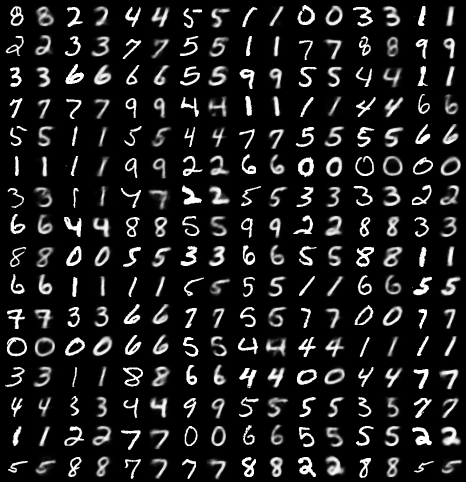 8 8 2 2 4 4 5 5 1 1 0 0 3 3 1 1
2 2 3 3 7 7 5 5 1 1 7 7 8 8 9 9
3 3 6 6 6 6 5 5 9 9 5 5 4 4 1 1
7 7 7 7 9 9 4 4 1 1 1 1 4 4 6 6
5 5 1 1 5 5 4 4 7 7 5 5 5 5 6 6
1 1 1 1 9 9 2 2 6 6 0 0 0 0 0 0
3 3 1 1 7 7 2 2 5 5 3 3 3 3 2 2
6 6 4 4 8 8 5 5 9 9 2 2 8 8 3 3
8 8 0 0 5 5 3 3 6 6 5 5 8 8 1 1
6 6 1 1 1 1 5 5 5 5 1 1 6 6 5 5
7 7 3 3 6 6 7 7 5 6 7 7 0 0 7 7
0 0 0 0 6 6 5 5 4 4 4 4 1 1 1 1
3 3 1 1 8 8 6 6 4 4 0 0 4 4 7 7
4 4 3 3 4 4 9 9 5 5 5 5 3 5 7 7
1 1 2 2 7 7 0 0 6 6 5 5 5 5 2 2
5 5 8 8 7 7 7 7 8 8 2 2 8 8 5 5